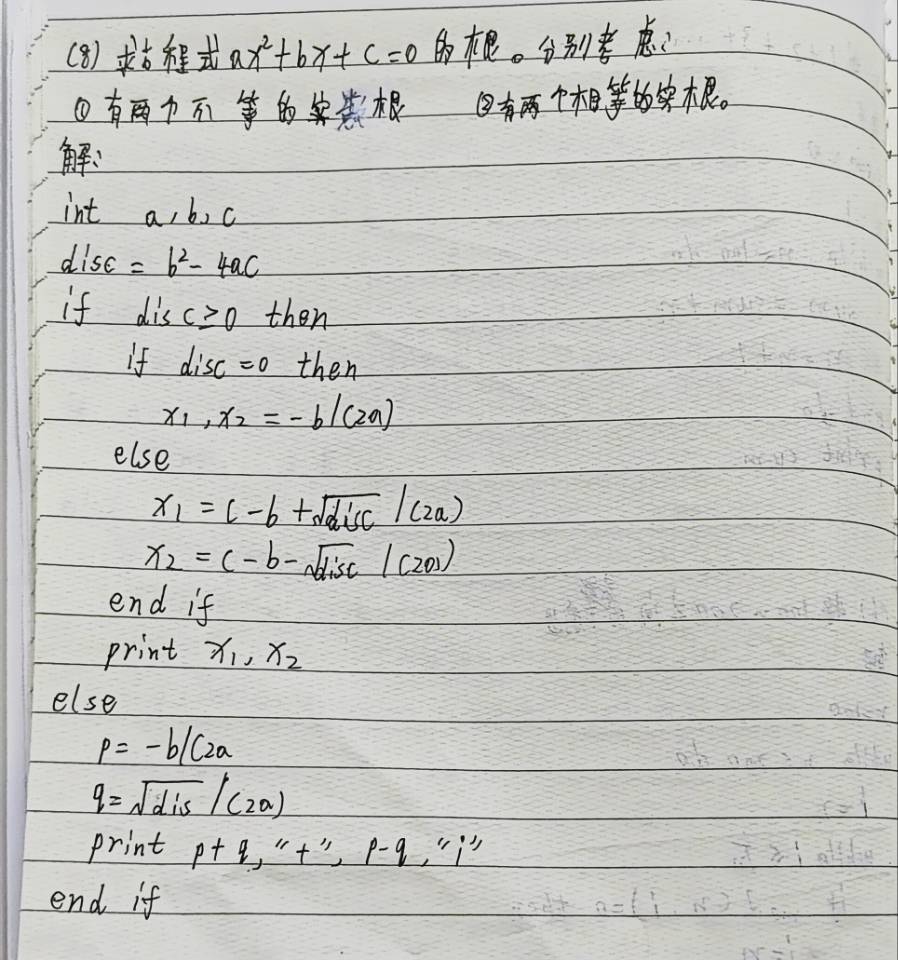 (8) 求方程式ax²+bx+c=0的根。分别考虑:
①有两个不等的实数根 ②有两个相等的实根。
解:
int a,b,c
disc = b²-4ac
if disc≥0 then
if disc=0 then
x₁,x₂=-b/(2a)
else
x₁=(-b+√disc /(2a)
x₂=(-b-√disc /(2a)
end if
print x₁,x₂
else
p=-b/(2a
q=√dis /(2a)
print p+q,"+",p-q,"i"
end if